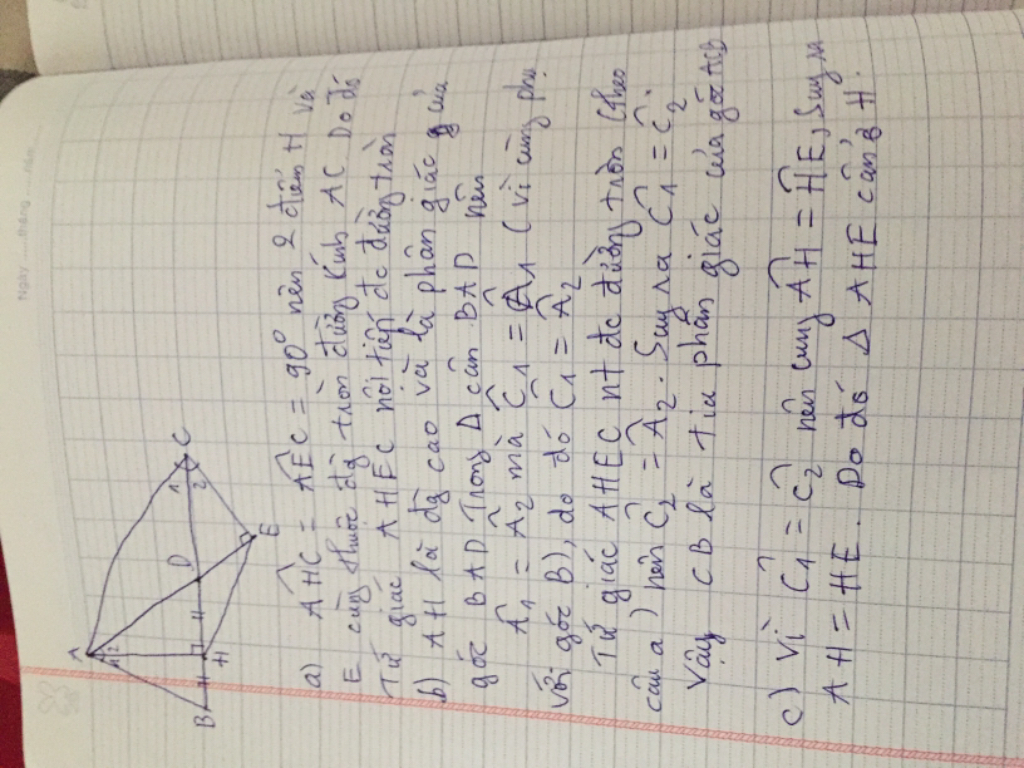 Ngày ........ tháng ........ năm ........
A
1
2
B
H
D
E
C
1
2
a) AHC = AEC = 90° nên 2 điểm H và
E cùng thuộc đg tròn đường kính AC Do đó
Tứ giác AHEC nội tiếp đc đường tròn
b) AH là đg cao và là phân giác của
góc BAD Trong Δ cân BAD nên
Â1 = Â2 mà Ĉ1 = Â1 (vì cùng phụ
với góc B), do đó Ĉ1 = Â2
Tứ giác AHEC nt đc đường tròn (theo
câu a) nên Ĉ2 = Â2. Suy ra Ĉ1 = Ĉ2.
Vậy CB là tia phân giác của góc ACB
c) Vì Ĉ1 = Ĉ2 nên cung AH = HE, Suy ra
AH = HE. Do đó Δ AHE cân H.